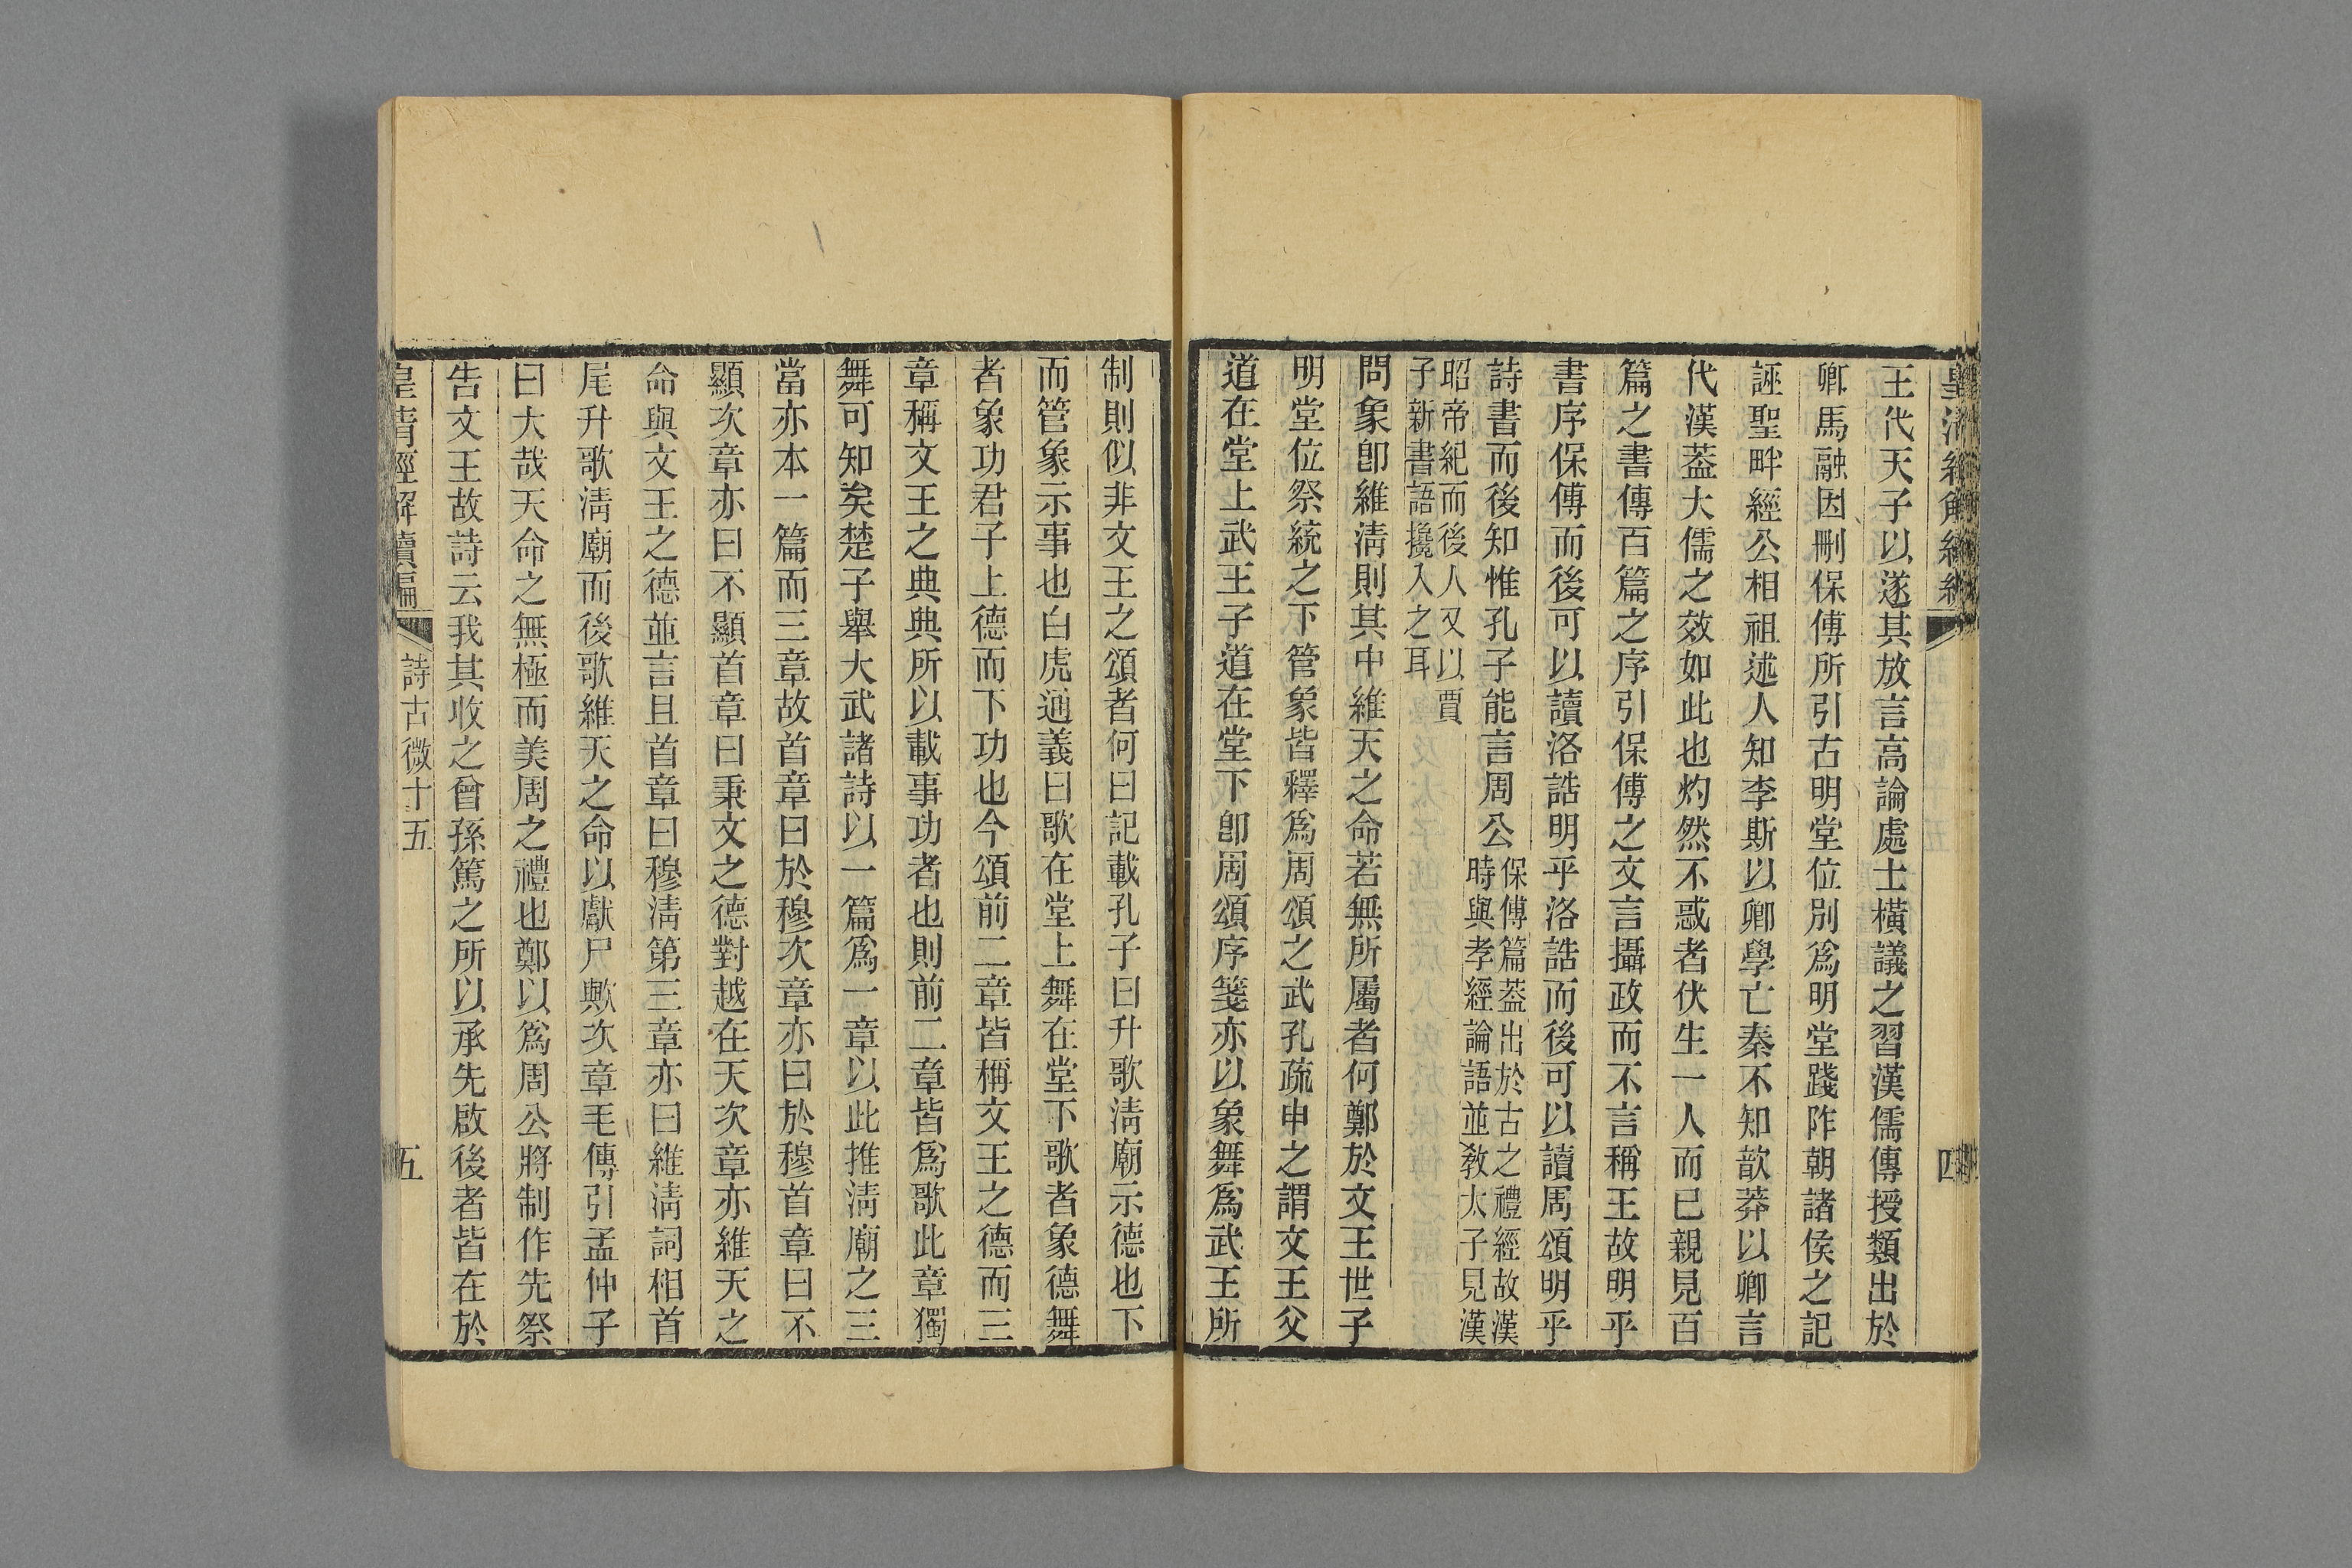 王代天子以遂其放言高論處士橫議之習漢儒傳授類出於
卿馬融因刪保傅所引古明堂位別爲明堂踐阼朝諸侯之記
誣聖畔經公相祖述人知李斯以卿學亡秦不知歆莽以卿言
代漢葢大儒之效如此也灼然不惑者伏生一人而已親見百
篇之書傳百篇之序引保傅之文言攝政而不言稱王故明乎
書序保傅而後可以讀洛誥明乎洛誥而後可以讀周頌明乎
詩書而後知惟孔子能言周公
保傅篇葢出於古之禮經故漢
時與孝經論語並敎太子見漢
昭帝紀而後人又以賈
子新書語攙入之耳
問象卽維淸則其中維天之命若無所屬者何鄭於文王世子
明堂位祭統之下管象皆釋爲周頌之武孔疏申之謂文王父
道在堂上武王子道在堂下卽周頌序箋亦以象舞爲武王所
制則似非文王之頌者何曰記載孔子曰升歌淸廟示德也下
而管象示事也白虎通義曰歌在堂上舞在堂下歌者象德舞
者象功君子上德而下功也今頌前二章皆稱文王之德而三
章稱文王之典典所以載事功者也則前二章皆爲歌此章獨
舞可知矣楚子舉大武諸詩以一篇爲一章以此推淸廟之三
當亦本一篇而三章故首章曰於穆次章亦曰於穆首章曰不
顯次章亦曰不顯首章曰秉文之德對越在天次章亦維天之
命與文王之德並言且首章曰穆淸第三章亦曰維淸詞相首
尾升歌淸廟而後歌維天之命以獻尸歟次章毛傳引孟仲子
曰大哉天命之無極而美周之禮也鄭以爲周公將制作先祭
告文王故詩云我其收之曾孫篤之所以承先啟後者皆在於
皇淸經解續編
詩古微十五
五